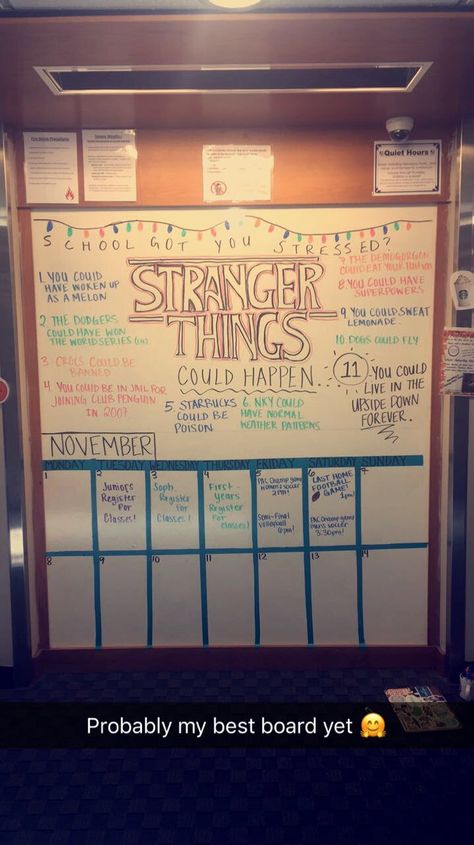 Fire Alarm Procedures
Severe Weather
Quiet Hours
SCHOOL GOT YOU STRESSED?
STRANGER
THINGS
COULD HAPPEN...
1. YOU COULD
HAVE WOKEN UP
AS A MELON
2. THE DODGERS
COULD HAVE WON
THE WORLD SERIES
3. CROCS COULD BE
BANNED
4. YOU COULD BE IN JAIL FOR
JOINING CLUB PENGUIN
IN 2007
5. STARBUCKS
COULD BE
POISON
6. NKY COULD
HAVE NORMAL
WEATHER PATTERNS
7. THE DEMOGORGON
COULD EAT YOUR TUITION
8. YOU COULD HAVE
SUPERPOWERS
9. YOU COULD SWEAT
LEMONADE.
10. DOGS COULD FLY
11 YOU COULD
LIVE IN THE
UPSIDE DOWN
FOREVER.
NOVEMBER
MONDAY TUESDAY WEDNESDAY THURSDAY FRIDAY SATURDAY SUNDAY
1
2
Juniors
Register
For
Classes!
3
Soph.
Register
For
Classes!
4
First-
years
Register
For
Classes!
5
PAC Champ game
women's soccer
2pm!
Semi-Final
Volleyball
6pm!
6
LAST HOME
FOOTBALL
GAME!
1pm!
PAC Champ game
men's soccer
3:30pm!
7
8 9 10 11 12 13 14
Probably my best board yet 🤗